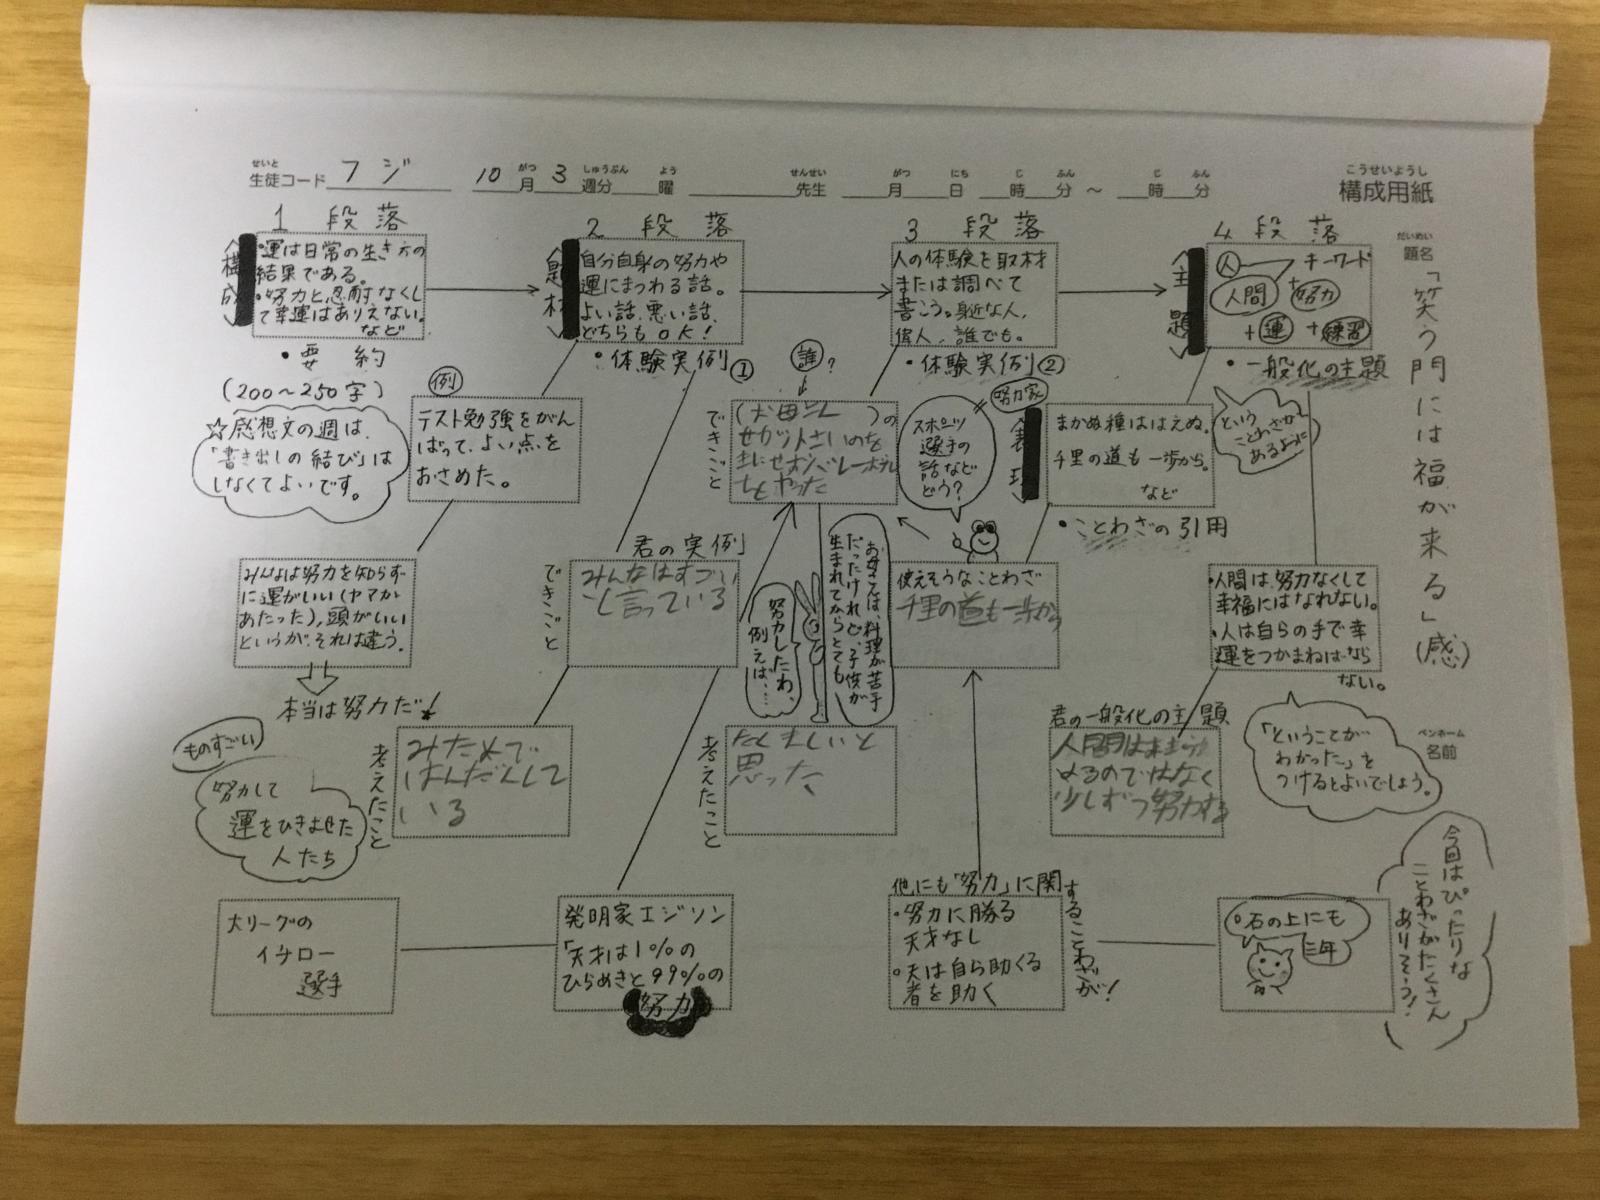 せいと がつ しゅうぶん よう せんせい がつ にち じ ふん じ ふん
生徒コード フジ 10月 3週分 曜 先生 月 日 時 分 ～ 時 分
こうせいようし
構成用紙
だいめい
題名
「笑う門には福が来る」(感)
ペンネーム
名前
1 段落
〈構成〉
・運は日常の生き方の
結果である。
・努力と忍耐なくし
て幸運はありえない。
など
・要約
(200～250字)
☆感想文の週は、
「書き出しの結び」は
しなくてよいです。
2 段落
〈題材〉
自分自身の努力や
運にまつわる話。
よい話、悪い話、
どちらもOK!
・体験実例①
例
テスト勉強をがん
ばって、よい点を
おさめた。
みんなは努力を知らず
に運がいい(ヤマが
あたった)、頭がいい
というが、それは違う。
本当は努力だ!
君の実例
できごと
みんなはすごい
と言っている
考えたこと
みためで
はんだんして
いる
ものすごい
努力して
運をひきよせた
人たち
大リーグの
イチロー
選手
発明家エジソン
「天才は1%の
ひらめきと99%の
努力
3 段落
人の体験を取材
または調べて
書こう。身近な人、
偉人、誰でも。
・体験実例②
誰?
努力家
スポーツ
選手の
話など
どう?
できごと
(お母さん)の
やった
お母さんは、料理が苦手
だったけれど、子供が
生まれてからとても
努力したわ、
例えば、…
考えたこと
思った、
4 段落
〈主題〉
人 キーワード
人間 + 努力
+ 運 + 練習
・一般化の主題
〈表現〉
まかぬ種ははえぬ。
千里の道も一歩から。
など
・ことわざの引用
という
ことわざが
あるように
使えそうなことわざ
千里の道も一歩から
・人間は、努力なくして
幸福にはなれない。
・人は自らの手で幸
運をつかまねばなら
ない。
「ということが
わかった。」を
つけるとよいでしょう。
君の一般化の主題
人間は
めるのではなく
少しずつ努力する
他にも「努力」に関することわざが!
・努力に勝る
天才なし
・天は自ら助くる
者を助く
石の上にも
三年
今回はぴったりな
ことわざがたくさん
ありそう!